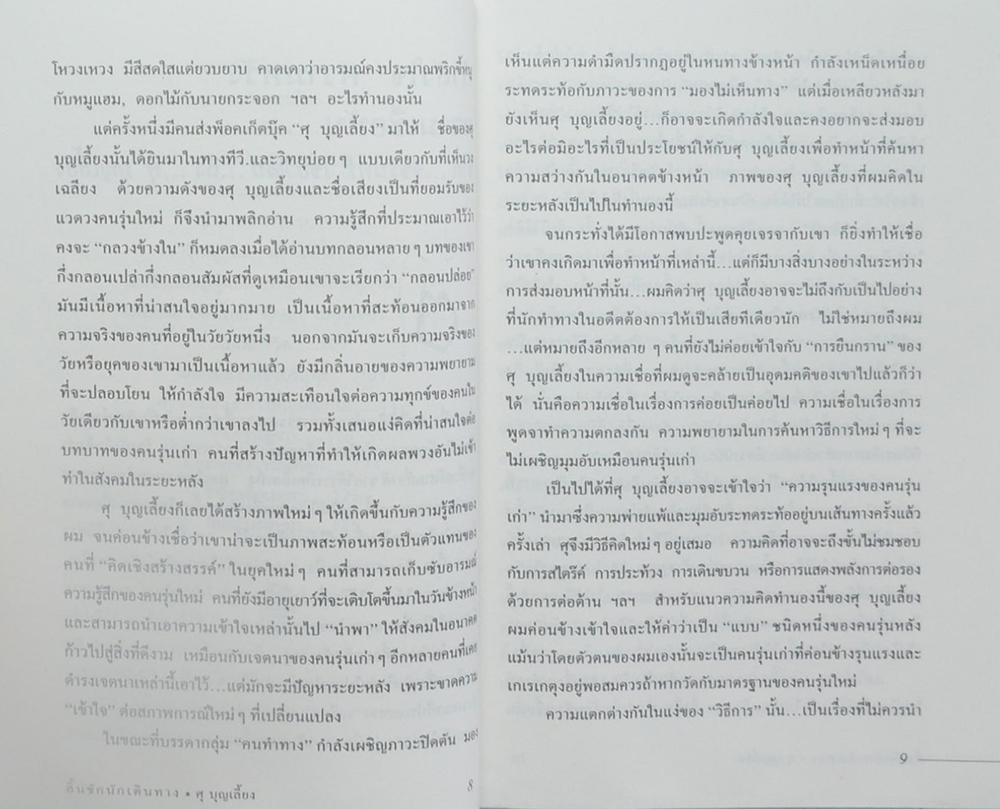 โหวงเหวง มีสีสดใสแต่ยวบยาบ คาดเดาว่าอารมณ์คงประมาณพริกขี้หนู
กับหมูแฮม, ดอกไม้กับนายกระจอก ฯลฯ อะไรทำนองนั้น
แต่ครั้งหนึ่งมีคนส่งพ็อคเก็ตบุ๊ค “ศุ บุญเลี้ยง” มาให้ ชื่อของศุ
บุญเลี้ยงนั้นได้ยินมาในทางทีวี.และวิทยุบ่อยๆ แบบเดียวกับที่เห็นวง
เฉลียง ด้วยความดังของศุ บุญเลี้ยงและชื่อเสียงเป็นที่ยอมรับของ
แวดวงคนรุ่นใหม่ ก็จึงนำมาพลิกอ่าน ความรู้สึกที่ประมาณเอาไว้ว่า
คงจะ “กลวงข้างใน” ก็หมดลงเมื่อได้อ่านบทกลอนหลายๆ บทของเขา
กึ่งกลอนเปล่ากึ่งกลอนสัมผัสที่ดูเหมือนเขาจะเรียกว่า “กลอนปล่อย”
มันมีเนื้อหาที่น่าสนใจอยู่มากมาย เป็นเนื้อหาที่สะท้อนออกมาจาก
ความจริงของคนที่อยู่ในวัยวัยหนึ่ง นอกจากมันจะเก็บความจริงของ
วัยหรือยุคของเขามาเป็นเนื้อหาแล้ว ยังมีกลิ่นอายของความพยายาม
ที่จะปลอบโยน ให้กำลังใจ มีความสะเทือนใจต่อความทุกข์ของคนใน
วัยเดียวกับเขาหรือต่ำกว่าเขาลงไป รวมทั้งเสนอแง่คิดที่น่าสนใจต่อ
บทบาทของคนรุ่นเก่า คนที่สร้างปัญหาที่ทำให้เกิดผลพวงอันไม่เข้า
ท่าในสังคมในระยะหลัง
ศุ บุญเลี้ยงก็เลยได้สร้างภาพใหม่ๆ ให้เกิดขึ้นกับความรู้สึกของ
ผม จนค่อนข้างเชื่อว่าเขาน่าจะเป็นภาพสะท้อนหรือเป็นตัวแทนของ
คนที่ “คิดเชิงสร้างสรรค์” ในยุคใหม่ๆ คนที่สามารถเก็บซับอารมณ์
ความรู้สึกของคนรุ่นใหม่ คนที่ยังมีอายุเยาว์ที่จะเติบโตขึ้นมาในวันข้างหน้า
และสามารถนำเอาความเข้าใจเหล่านั้นไป “นำพา” ให้สังคมในอนาคต
ก้าวไปสู่สิ่งที่ดีงาม เหมือนกับเจตนาของคนรุ่นเก่าๆ อีกหลายคนที่เคย
ดำรงเจตนาเหล่านี้เอาไว้...แต่มักจะมีปัญหาระยะหลัง เพราะขาดความ
“เข้าใจ” ต่อสภาพการณ์ใหม่ๆ ที่เปลี่ยนแปลง
ในขณะที่บรรดากลุ่ม “คนทำทาง” กำลังเผชิญภาวะปิดตัน มอง
8
อั้นชักนักเดินทาง • ศุ บุญเลี้ยง
เห็นแต่ความดำมืดปรากฏอยู่ในหนทางข้างหน้า กำลังเหน็ดเหนื่อย
ระทดระท้อกับภาวะของการ “มองไม่เห็นทาง” แต่เมื่อเหลียวหลังมา
ยังเห็นศุ บุญเลี้ยงอยู่...ก็อาจจะเกิดกำลังใจและคงอยากจะส่งมอบ
อะไรต่อมิอะไรที่เป็นประโยชน์ให้กับศุ บุญเลี้ยงเพื่อทำหน้าที่ค้นหา
ความสว่างกันในอนาคตข้างหน้า ภาพของศุ บุญเลี้ยงที่ผมคิดใน
ระยะหลังเป็นไปในทำนองนี้
จนกระทั่งได้มีโอกาสพบปะพูดคุยเจรจากับเขา ก็ยิ่งทำให้เชื่อ
ว่าเขาคงเกิดมาเพื่อทำหน้าที่เหล่านี้...แต่ก็มีบางสิ่งบางอย่างในระหว่าง
การส่งมอบหน้าที่นั้น...ผมคิดว่าศุ บุญเลี้ยงอาจจะไม่ถึงกับเป็นไปอย่าง
ที่นักทำทางในอดีตต้องการให้เป็นเสียทีเดียวนัก ไม่ใช่หมายถึงผม
...แต่หมายถึงอีกหลาย ๆ คนที่ยังไม่ค่อยเข้าใจกับ “การยืนกราน” ของ
ศุ บุญเลี้ยงในความเชื่อที่ผมดูจะคล้ายเป็นอุดมคติของเขาไปแล้วก็ว่า
ได้ นั่นคือความเชื่อในเรื่องการค่อยเป็นค่อยไป ความเชื่อในเรื่องการ
พูดจาทำความตกลงกัน ความพยายามในการค้นหาวิธีการใหม่ๆ ที่จะ
ไม่เผชิญมุมอับเหมือนคนรุ่นเก่า
เป็นไปได้ที่ศุ บุญเลี้ยงอาจจะเข้าใจว่า “ความรุนแรงของคนรุ่น
เก่า” นำมาซึ่งความพ่ายแพ้และมุมอับระทดระท้ออยู่บนเส้นทางครั้งแล้ว
ครั้งเล่า ศุจึงมีวิธีคิดใหม่ๆ อยู่เสมอ ความคิดที่อาจจะถึงขั้นไม่ชมชอบ
กับการสไตร๊ค์ การประท้วง การเดินขบวน หรือการแสดงพลังการต่อรอง
ด้วยการต่อต้าน ฯลฯ สำหรับแนวความคิดทำนองนี้ของศุ บุญเลี้ยง
ผมค่อนข้างเข้าใจและให้ค่าว่าเป็น “แบบ” ชนิดหนึ่งของคนรุ่นหลัง
แม้นว่าโดยตัวตนของผมเองนั้นจะเป็นคนรุ่นเก่าที่ค่อนข้างรุนแรงและ
เกเรเกตุงอยู่พอสมควรถ้าหากวัดกับมาตรฐานของคนรุ่นใหม่
ความแตกต่างกันในแง่ของ “วิธีการ” นั้น...เป็นเรื่องที่ไม่ควรนำ
9